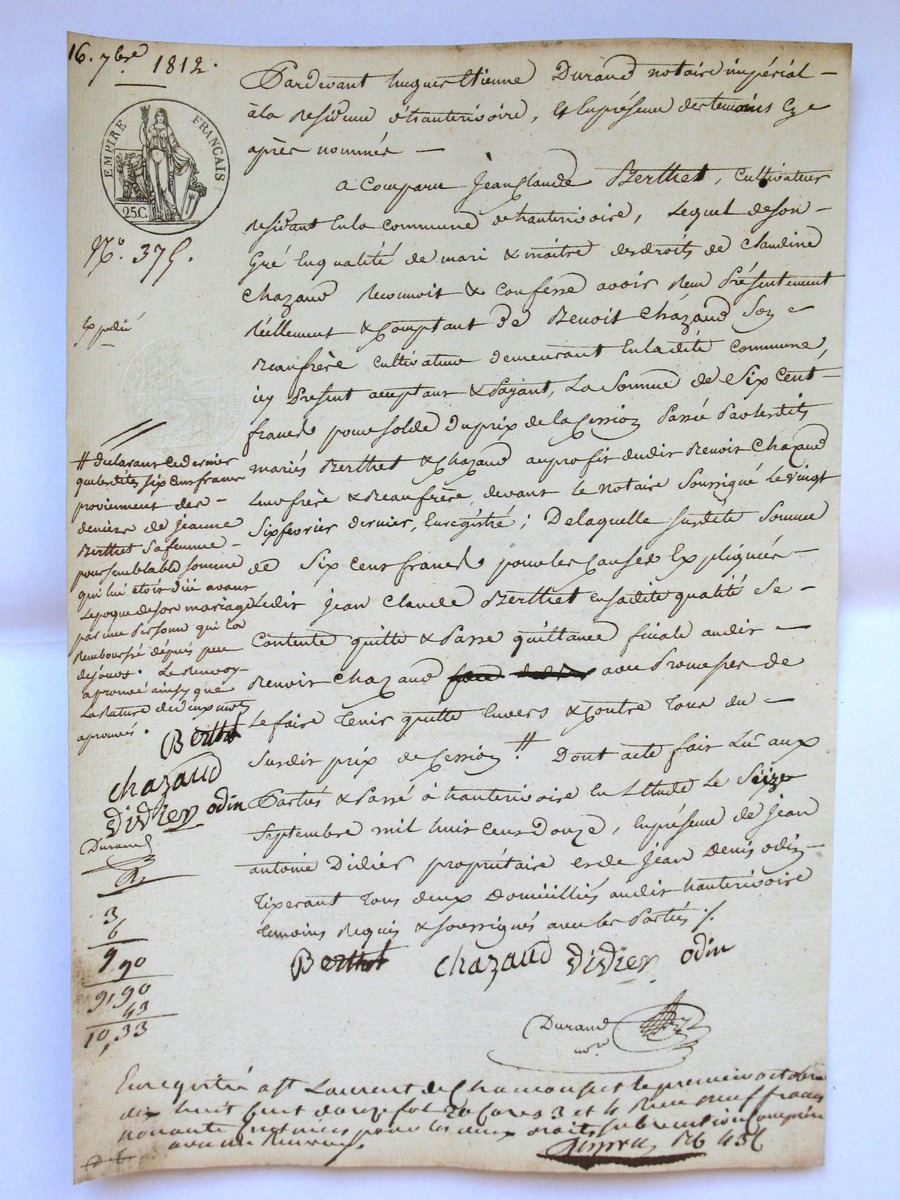 16. 7bre 1812.
EMPIRE FRANÇAIS
25C.
N°. 375.
Expédié
Pardevant hugues Etienne Durand notaire impérial
à la Residence d'hauterivoire, & En présence des temoins cy
après nommés
a Comparu Jean Claude Berthet, Cultivateur
résidant En la Commune d'hauterivoire, Lequel de son
Gré En qualité de mari & maitre des droits de Claudine
Chazaud Reconnoit & Confesse avoir Reçu Présentement
Réellement & Comptant de Benoit Chazaud Son
Beaufrère Cultivateur demeurant En la dite Commune,
icy Présent acceptant & Payant, La Somme de Six Cent
francs pour Solde du prix de la Cession Passée Par les dits
mariés Berthet & Chazaud au profit dudit Benoit Chazaud
Leur frère & Beaufrère, devant le notaire Soussigné Le vingt
Six fevrier dernier, Enregistré; De laquelle susdite Somme
de Six Cent francs pour les Causes Expliquées
Ledit Jean Claude Berthet en sadite qualité Se
Contente quitte & Passe quittance finale audit
Benoit Chazaud avec Promesse de
Le faire Tenir quitte Envers & Contre Tous du
Susdit prix de Cession # Dont acte fait Lû aux
Parties & Passé à hauterivoire En L'Etude Le Seize
Septembre mil huit Cent Douze, En présence de Jean
antoine Didier propriétaire et de Jean Denis odin
Tixerant Tous deux Domiciliés audit hauterivoire
Temoins Requis & Soussignés avec les Parties ./.
Berthet Chazaud Didier odin
Durand
nore
# declarant Ce dernier
que lesdits six Cent francs
proviennent des
deniers de Jeanne
Berthet Sa femme
pour semblable somme
qui lui étoit dûë avant
L'epoque de son mariage
par une Personne qui l'a
Remboursé dépuis peu
de jours. Le Renvoy
aprouvé ainsy que
La Rature de deux mots
aprouvés.
Berthet
Chazaud
Didier odin
Durand
3
6
9 90
9,90
43
10,33
Enregistré a St Laurent de Chamousset le premier octobre
dix huit Cent douze fol 20 Cases 3 et 4 Reçu neuf francs
nonante Centimes pour les deux droits subvention Comprise
avec un Renvoy.